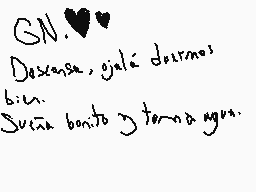 GN.♥♥
Descansa, ojalá duermas
bien.
Sueña bonito y toma agua.